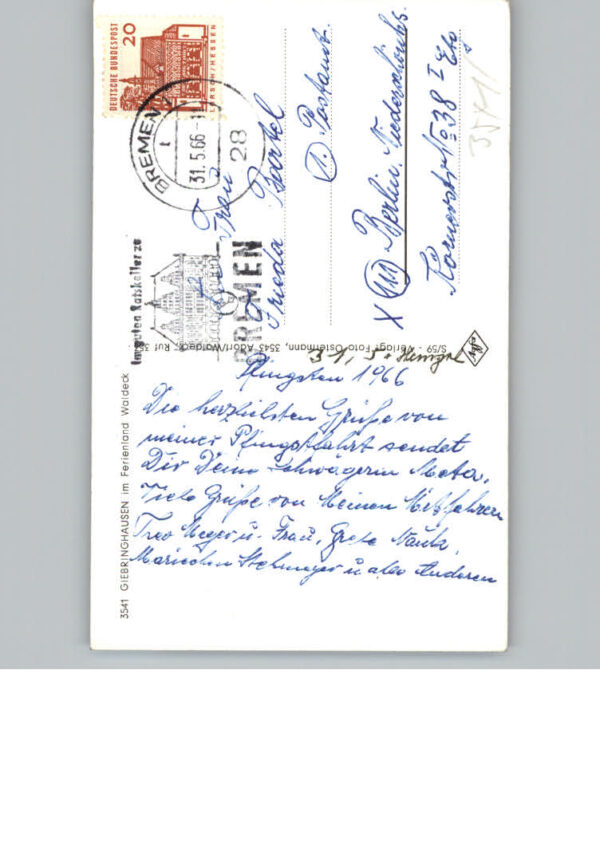 DEUTSCHE BUNDESPOST
20
LORSCH/HESSEN
BREMEN 1
31.5.66
28
Im guten Ratskeller zu
BREMEN
Frau
Frieda Bartel
(1). Postamt
X (111) Berlin. Niederschönhs.
Körnerstr No 38 I Etg
3541 GIEBRINGHAUSEN im Ferienland Waldeck
S/59 - Verlag: Foto-Ostermann, 3543 Adorf/Waldeck, Ruf
31, 5.
Pfingsten 1966
Die herzlichsten Grüße von
meiner Pfingstfahrt sendet
Dir Deine Schwägerin Meta.
Viele Grüße von Meinen Mitfahrern
Meyer u. Frau, Grete
u alle Anderen